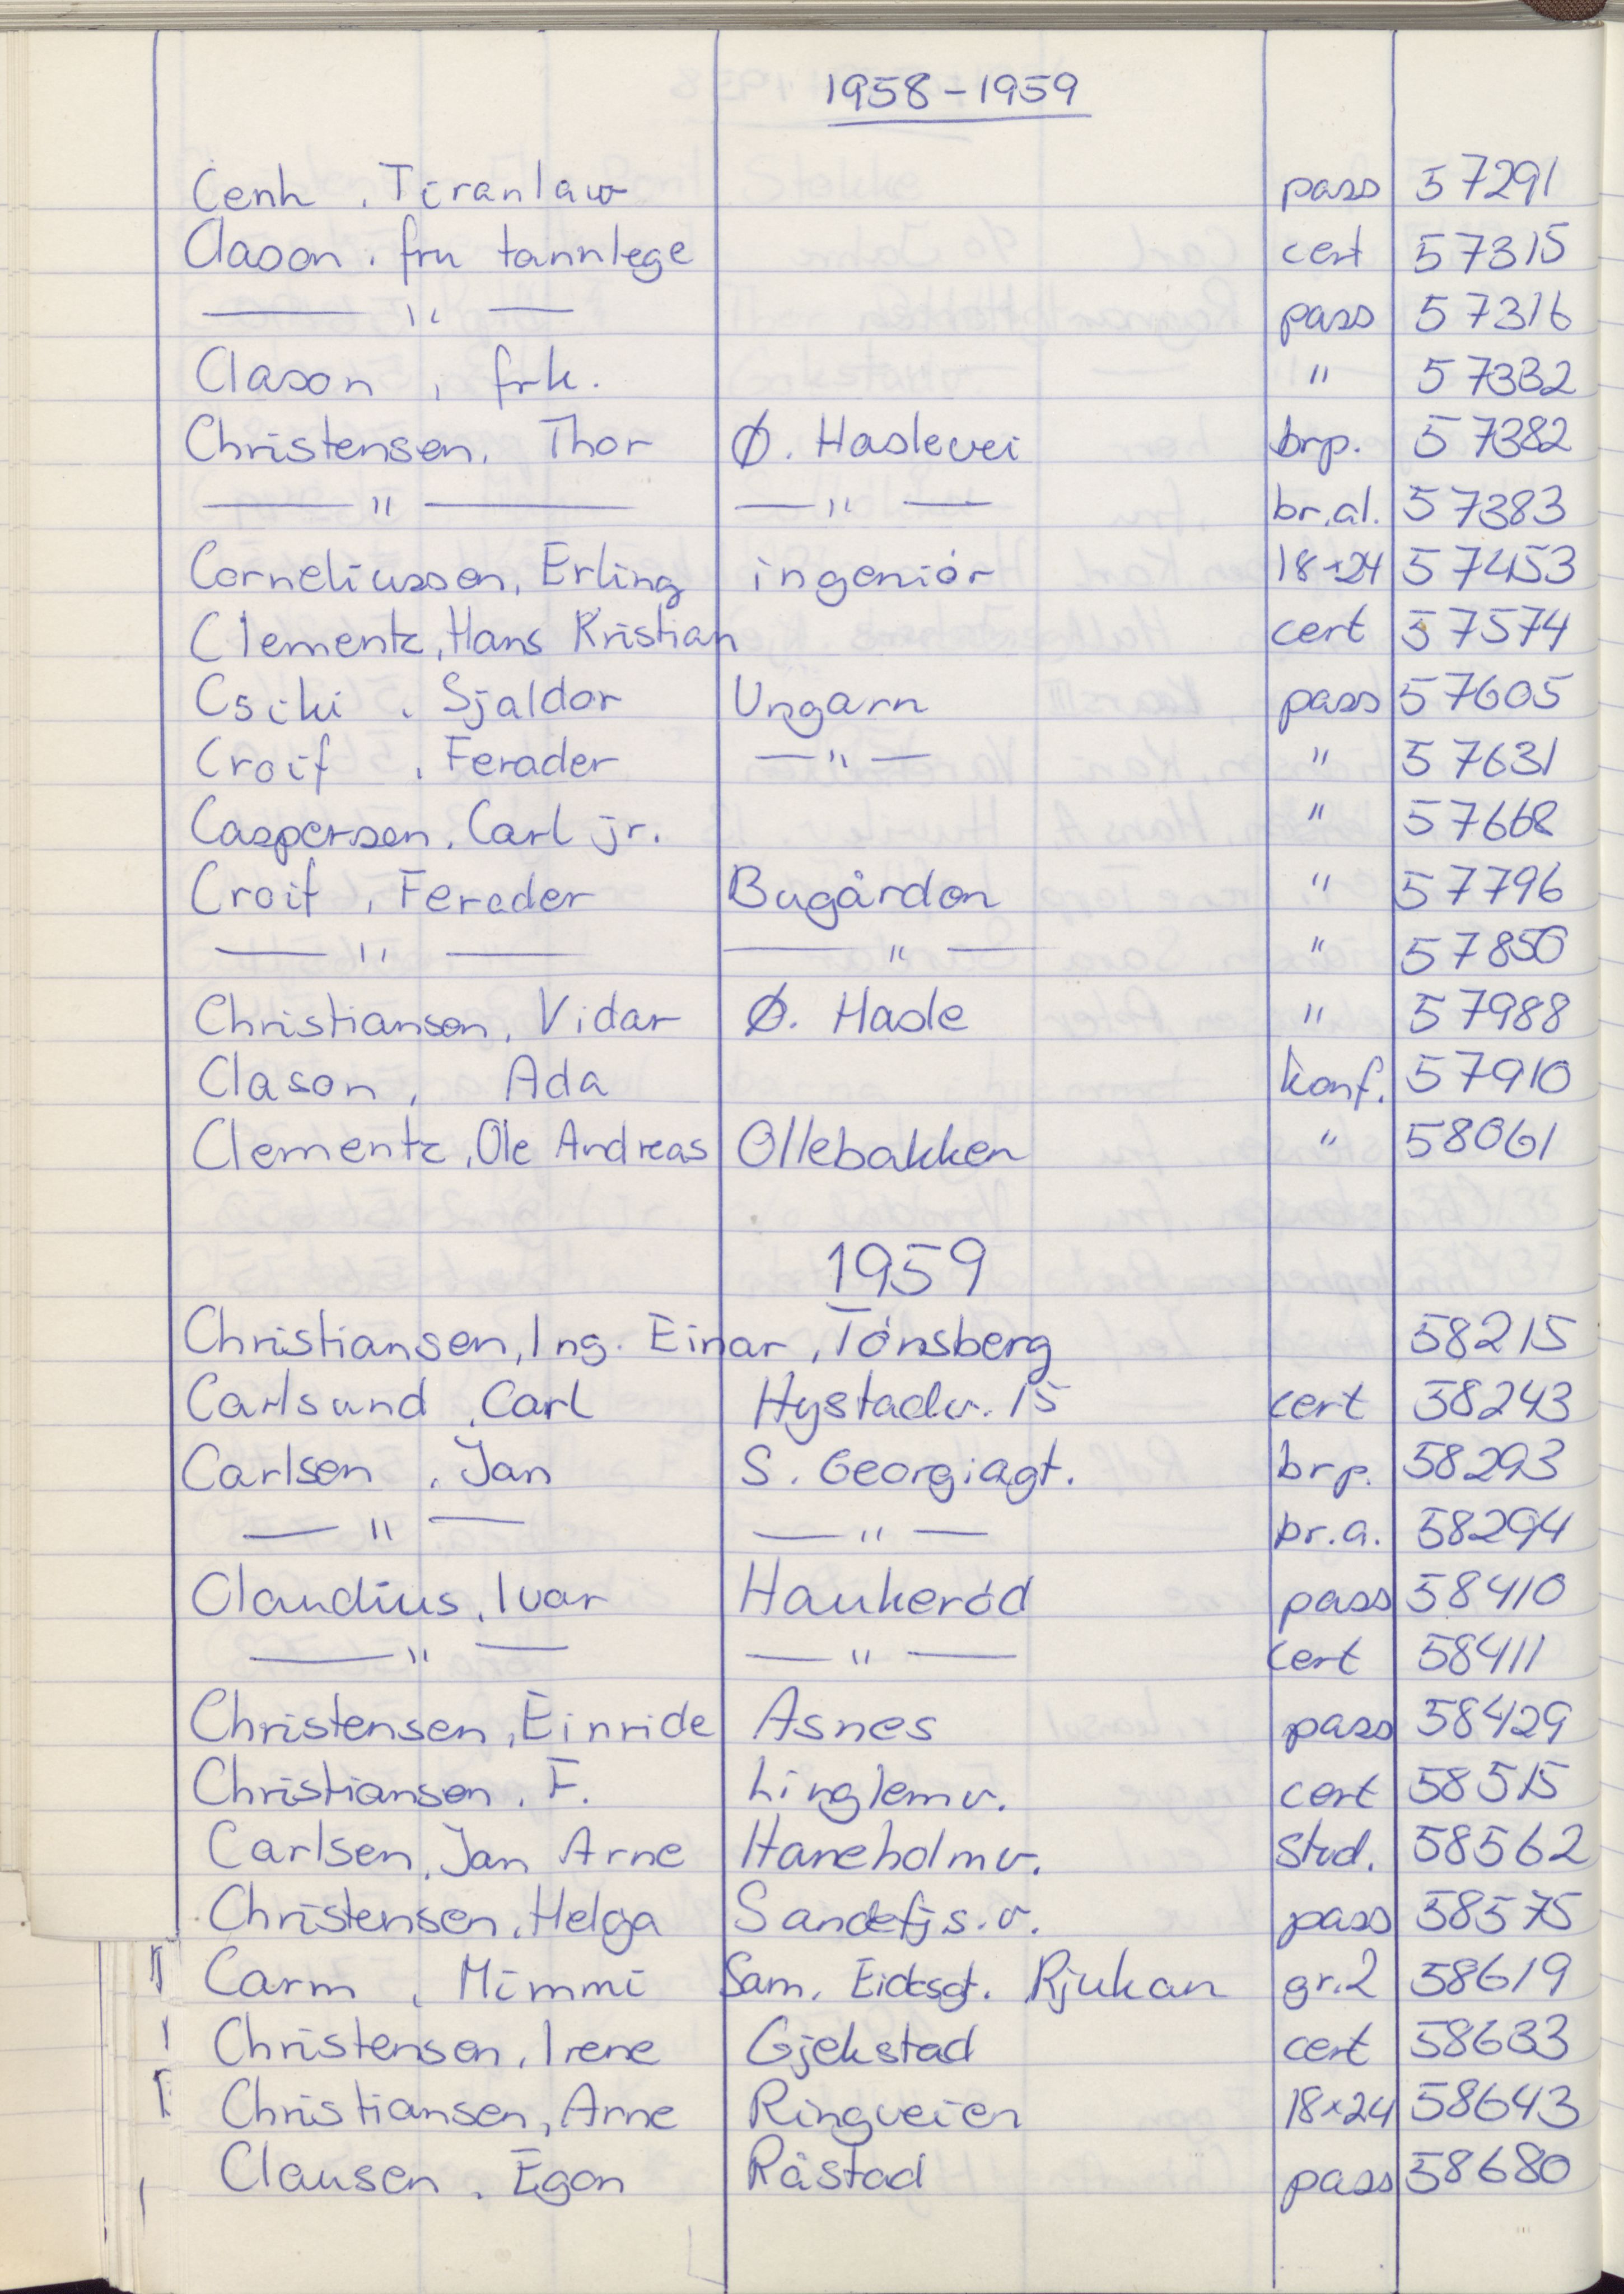 1958-1959
Cenk, Tiranlaw pass 57291
Clason, fru tannlege cert 57315
— " — pass 57316
Clason, frk. " 57332
Christensen, Thor Ø. Haslevei brp. 57382
— " — — " — br.al. 57383
Corneliussen, Erling ingeniör 18×24 57453
Clementz, Hans Kristian cert 57574
Csiki, Sjaldor Ungarn pass 57605
Croif, Ferader — " — " 57631
Caspersen, Carl jr. " 57668
Croif, Ferader Bugården " 57796
— " — — " — " 57850
Christiansen, Vidar Ø. Hasle " 57988
Clason, Ada konf. 57910
Clementz, Ole Andreas Ollebakken " 58061
1959
Christiansen, Ing. Einar, Tönsberg 58215
Carlsund, Carl Hystadv. 15 cert 58243
Carlsen, Jan S. Georgiagt. brp. 58293
— " — — " — br.a. 58294
Claudius, Ivar Haukeröd pass 58410
— " — — " — cert 58411
Christensen, Einride Asnes pass 58429
Christiansen, F. Linglemv. cert 58515
Carlsen, Jan Arne Haneholmv. Stud. 58562
Christensen, Helga Sandefj.s.v. pass 58575
Carm, Mimmi Sam. Eidesgt. Rjukan gr.2 58619
Christensen, Irene Gjekstad cert 58633
Christiansen, Arne Ringveien 18×24 58643
Clausen, Egon Råstad pass 58680